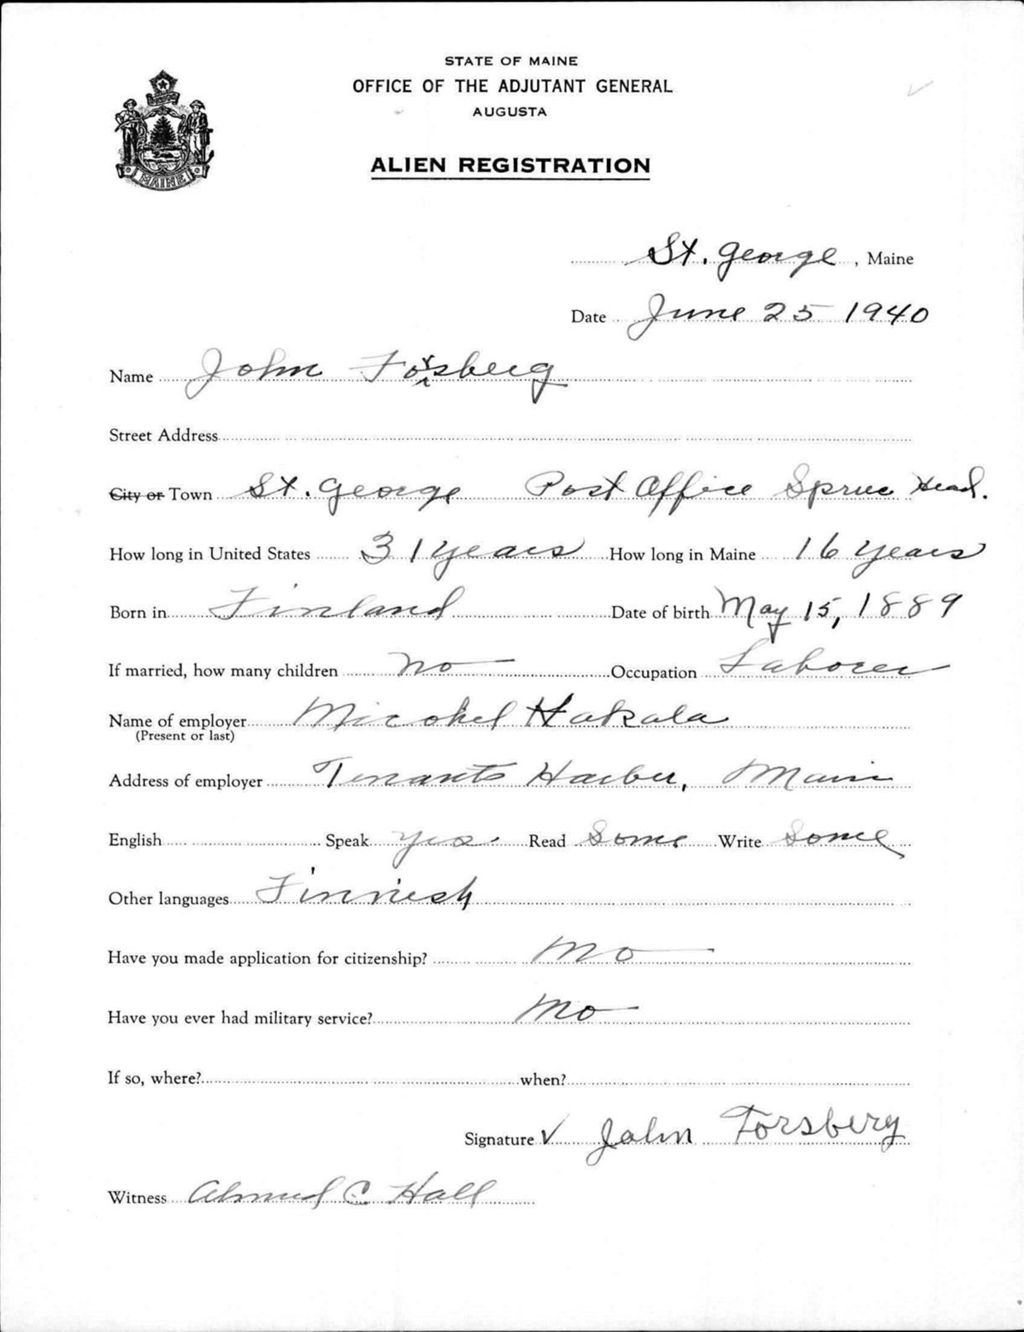 STATE OF MAINE
OFFICE OF THE ADJUTANT GENERAL
AUGUSTA
ALIEN REGISTRATION
MAINE
St. George, Maine
Date June 25 1940
Name John Forsberg
Street Address
City or Town St. George Post Office Spruce Head.
How long in United States 31 years How long in Maine 16 years
Born in Finland Date of birth May 15, 1889
If married, how many children no Occupation Laborer
Name of employer Micohel Hakala
(Present or last)
Address of employer Tenants Harber, Main
English Speak yes. Read Some Write Some
Other languages Finnish
Have you made application for citizenship? no
Have you ever had military service? no
If so, where? when?
Signature John Forsberg
Witness C Hall